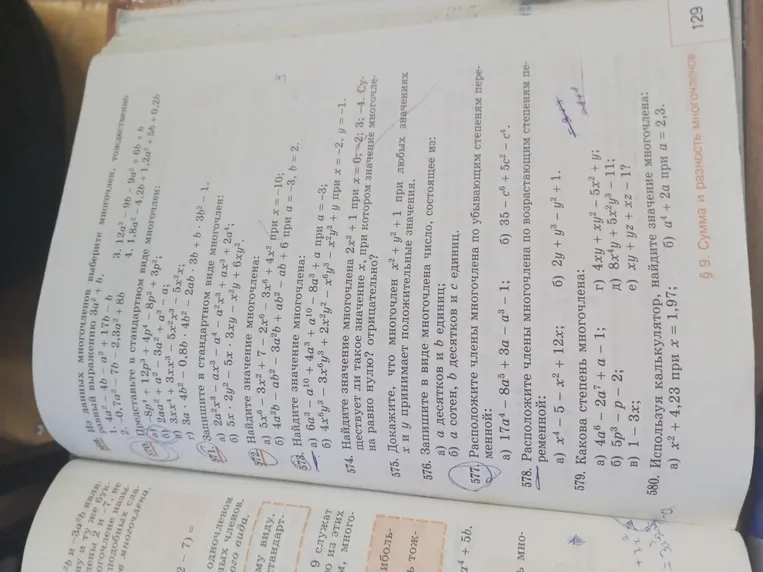 Из данных многочленов выберите многочлен, тождественно
равный выражению 3a² + b.
1. 4a² − 4b − a² + 17b − b
3. 12a² − 9b − 9a² + 6b + b
2. −0,7a² − 7b − 2,3a² + 8b
4. 1,8a² − 4,2b + 1,2a² + 5b + 0,2b
Представьте в стандартном виде многочлен:
а) −8p⁴ + 12p³ + 4p⁴ − 8p² + 3p²;
б) 2aa² + a² − 3a² + a³ − a;
в) 3xx⁴ + 3xx³ − 5x²x³ − 5x²x;
г) 3a · 4b² − 0,8b · 4b² − 2ab · 3b + b · 3b² − 1.
571. Запишите в стандартном виде многочлен:
а) 2a²x³ − ax³ − a⁴ − a²x³ + ax³ + 2a⁴;
б) 5x · 2y² − 5x · 3xy − x²y + 6xy².
572. Найдите значение многочлена:
а) 5x⁶ − 3x² + 7 − 2x⁶ − 3x⁶ + 4x² при x = −10;
б) 4a²b − ab² − 3a²b + ab² − ab + 6 при a = −3, b = 2.
573. Найдите значение многочлена:
а) 6a³ − a¹⁰ + 4a³ + a¹⁰ − 8a³ + a при a = −3;
б) 4x⁶y³ − 3x⁶y³ + 2x²y² − x⁶y³ − x²y² + y при x = −2, y = −1.
574. Найдите значение многочлена 2x² + 1 при x = 0; −2; 3; −4. Су-
ществует ли такое значение x, при котором значение многочле-
на равно нулю? отрицательно?
575. Докажите, что многочлен x² + y² + 1 при любых значениях
x и y принимает положительные значения.
576. Запишите в виде многочлена число, состоящее из:
а) a десятков и b единиц;
б) a сотен, b десятков и c единиц.
577. Расположите члены многочлена по убывающим степеням пере-
менной:
а) 17a⁴ − 8a⁵ + 3a − a³ − 1; б) 35 − c⁶ + 5c² − c⁴.
578. Расположите члены многочлена по возрастающим степеням пе-
ременной:
а) x⁴ − 5 − x² + 12x; б) 2y + y³ − y² + 1.
579. Какова степень многочлена:
а) 4a⁶ − 2a⁷ + a − 1; г) 4xy + xy² − 5x² + y;
б) 5p³ − p − 2; д) 8x⁴y + 5x²y³ − 11;
в) 1 − 3x; е) xy + yz + xz − 1?
580. Используя калькулятор, найдите значение многочлена:
а) x² + 4,23 при x = 1,97; б) a⁴ + 2a при a = 2,3.
§ 9. Сумма и разность многочленов
129